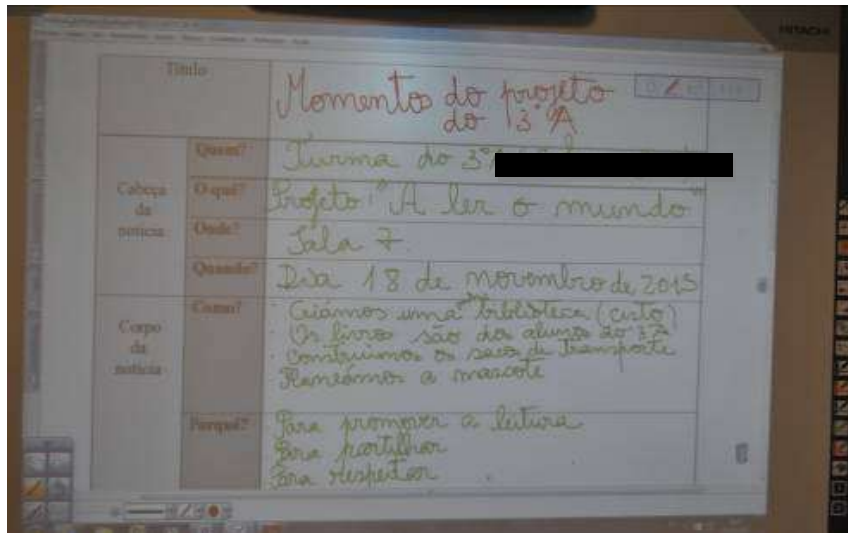 HITACHI
Título
Momentos do projeto
do 3ºA
Cabeça
da
notícia
Quem?
Turma do 3ºA
O quê?
Projeto "A ler o mundo"
Onde?
Sala 7
Quando?
Dia 18 de novembro de 2015
Corpo
da
notícia
Como?
Criámos uma biblioteca (cesto)
Os livros são dos alunos do 3ºA
Construímos os sacos de transporte
Planeámos a mascote
Porquê?
Para promover a leitura
Para partilhar
Para respeitar